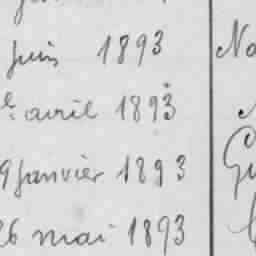 juin 1893 No
avril 1893
9 janvier 1893
26 mai 1893